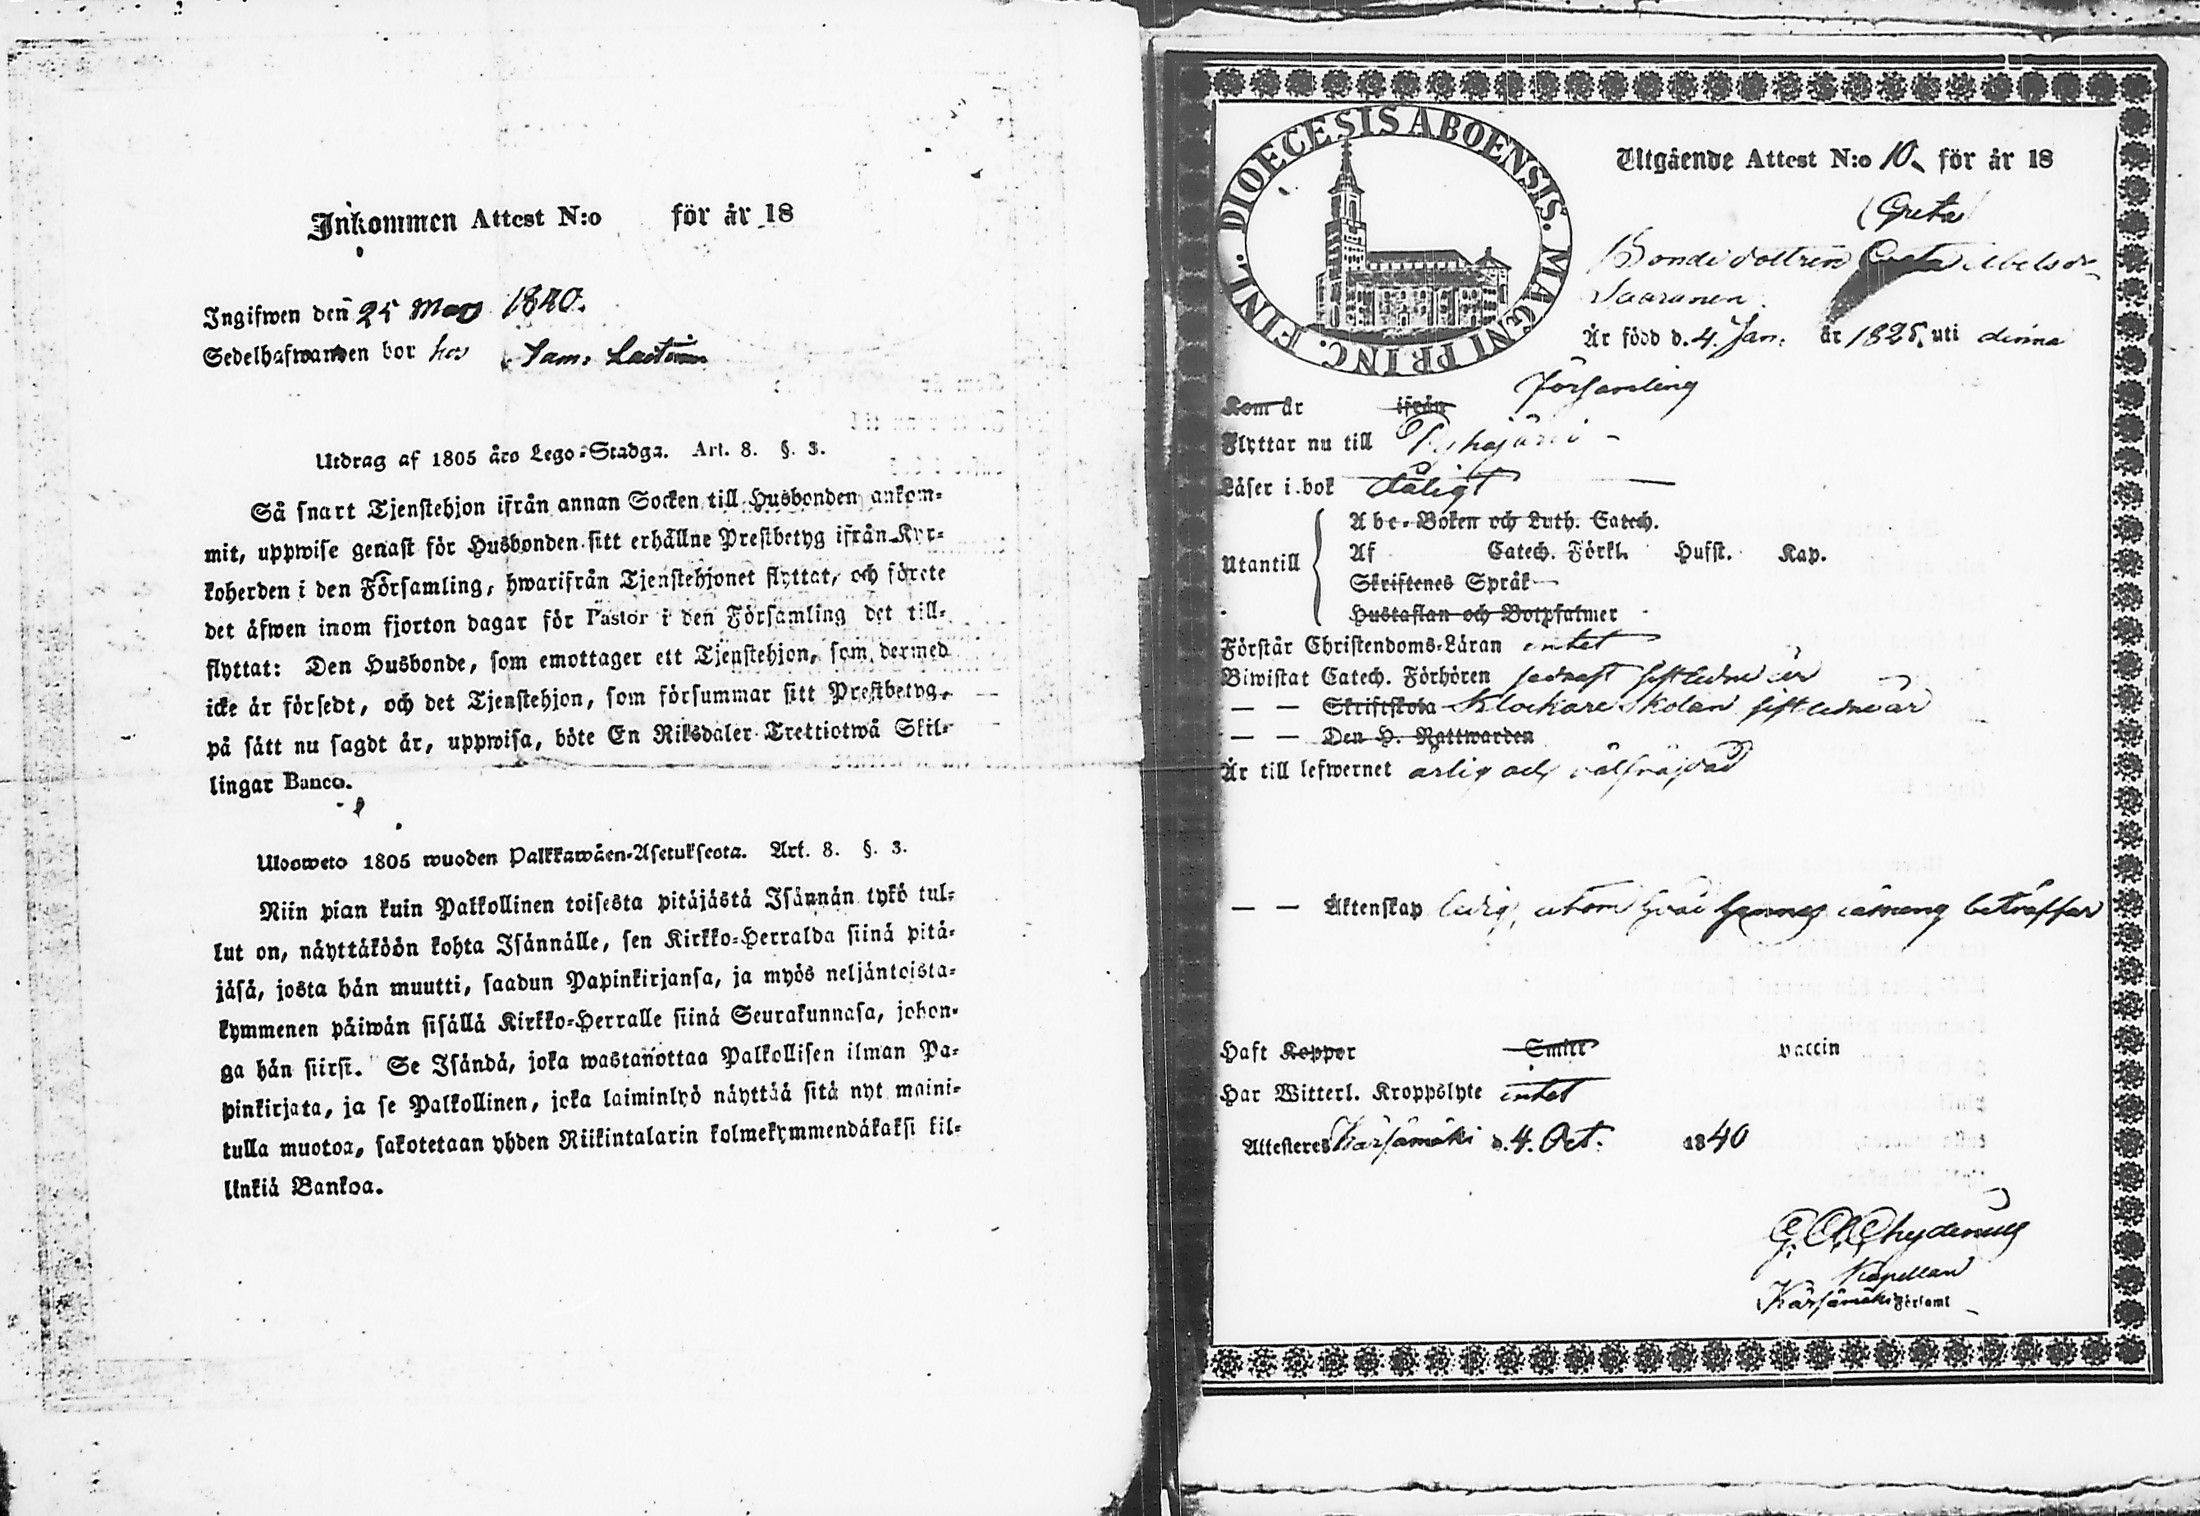 Inkommen Attest N:o för år 18
Ingifwen den 25 1840.
Sedelhafwanden bor hos Sam.
Utdrag af 1805 års Lego-Stadga. Art. 8. §. 3.
Så snart Tjenstehjon ifrån annan Socken till Husbonden ankom-
mit, uppwise genast för Husbonden sitt erhållne Prestbetyg ifrån Kyr-
koherden i den Församling, hwarifrån Tjenstehjonet flyttat, och förete
det äfwen inom fjorton dagar för Pastor i den Församling det till-
flyttat: Den Husbonde, som emottager ett Tjenstehjon, som dermed
icke är försedt, och det Tjenstehjon, som försummar sitt Prestbetyg,
på sätt nu sagdt är, uppwisa, böte En Riksdaler Trettiotwå Skil-
lingar Banco.
Ulosweto 1805 wuoden Palkkawäen-Asetuksesta. Art. 8. §. 3.
Niin pian kuin Palkollinen toisesta pitäjästä Isännän tykö tul-
lut on, näyttäköön kohta Isännälle, sen Kirkko-Herralda siinä pitä-
jäsä, josta hän muutti, saadun Papinkirjansa, ja myös neljäntoista-
kymmenen päiwän sisällä Kirkko-Herralle siinä Seurakunnasa, johon-
ga hän siirsi. Se Isändä, joka wastanottaa Palkollisen ilman Pa-
pinkirjata, ja se Palkollinen, joka laiminlyö näyttää sitä nyt maini-
tulla muotoa, sakotetaan yhden Riikintalarin kolmekymmendäkaksi kil-
linkiä Bankoa.
DIOECESIS ABOENSIS. MAGNI PRINC. FINL.
Utgående Attest N:o 10 för år 18
(Greta)
Bonde dottren Greta Abelsdr
Saaranen.
Är född d. 4. Jan. år 1825, uti denna
Församling
Kom år ifrån
Flyttar nu till Pyhäjärvi
Läser i bok dåligt
Utantill
Abc-Boken och Luth. Catech.
Af Catech. Förkl. Hufst. Kap.
Skriftenes Språk
Hustaflan och Botpsalmer
Förstår Christendoms-Läran intet
Biwistat Catech. Förhören sistledne år
— — Skriftskola Klockare skolan sistledne år
— — Den H. Nattwarden
Är till lefwernet ärlig och välfräjdad
— — Äktenskap ledig, utom hvad hennes betraffar
Haft Koppor Smitt vaccin
Har Witterl. Kroppslyte intet
Attesteres Kärsämäki d. 4. Oct. 1840
G. A. Chydenius
Kapellan
Kärsämäki Församl